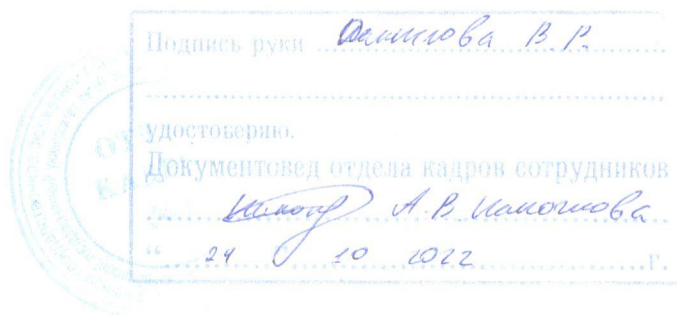 Подпись руки Данилова В.Р.
удостоверяю.
Документовед отдела кадров сотрудников
А.В.
" 24 " 10 2022 г.